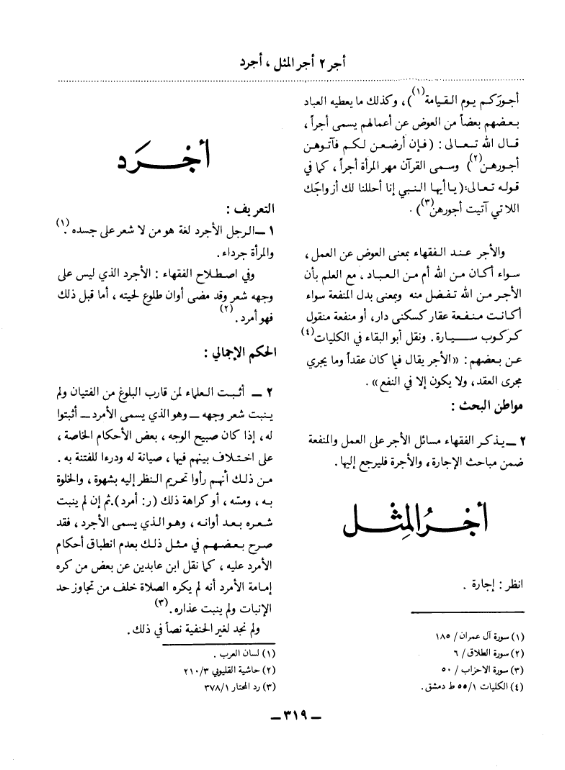 أجر ٢ أجر المثل ، أجرد
أجوركم يوم القيامة(١))، وكذلك ما يعطيه العباد
بعضهم بعضاً من العوض عن أعمالهم يسمى أجراً ،
قال الله تعالى : (فإن أرضعن لكم فآتوهن
أجورهن(٢)) وسمى القرآن مهر المرأة أجراً ، كما في
قوله تعالى:(يا أيها النبي إنا أحللنا لك أزواجك
اللاتي آتيت أجورهن(٣)) .
والأجر عند الفقهاء بمعنى العوض عن العمل ،
سواء أكان من الله أم من العباد ، مع العلم بأن
الأجر من الله تفضل منه وبمعنى بدل المنفعة سواء
أكانت منفعة عقار كسكنى دار، أو منفعة منقول
كركوب سيارة . ونقل أبو البقاء في الكليات(٤)
عن بعضهم : «الأجر يقال فيما كان عقداً وما يجري
مجرى العقد ، ولا يكون إلا في النفع» .
مواطن البحث :
٢ ــ يذكر الفقهاء مسائل الأجر على العمل والمنفعة
ضمن مباحث الإجارة، والأجرة فليرجع إليها .
أجر المثل
انظر : إجارة .
(١) سورة آل عمران / ١٨٥
(٢) سورة الطلاق / ٦
(٣) سورة الاحزاب / ٥٠
(٤) الكليات ٥٥/١ ط دمشق .
أجرد
التعريف :
١ ــ الرجل الأجرد لغة هو من لا شعر على جسده .(١)
والمرأة جرداء .
وفي اصطلاح الفقهاء : الأجرد الذي ليس على
وجهه شعر وقد مضى أوان طلوع لحيته ، أما قبل ذلك
فهو أمرد .(٢)
الحكم الإجمالي :
٢ ــ أثبت العلماء لمن قارب البلوغ من الفتيان ولم
ينبت شعر وجهه ــ وهو الذي يسمى الأمرد ــ أثبتوا
له ، إذا كان صبيح الوجه ، بعض الأحكام الخاصة ،
على اختلاف بينهم فيها ، صيانة له ودرءا للفتنة به .
من ذلك أنهم رأوا تحريم النظر إليه بشهوة ، والخلوة
به ، ومسّه ، أو كراهة ذلك (ر: أمرد).ثم إن لم ينبت
شعره بعد أوانه ، وهو الذي يسمى الأجرد ، فقد
صرح بعضهم في مثل ذلك بعدم انطباق أحكام
الأمرد عليه ، كما نقل ابن عابدين عن بعض من كره
إمامة الأمرد أنه لم يكره الصلاة خلف من تجاوز حد
الإنبات ولم ينبت عذاره .(٣)
ولم نجد لغير الحنفية نصاً في ذلك .
(١) لسان العرب .
(٢) حاشية القليوبي ٢١٠/٣
(٣) رد المحتار ٣٧٨/١
ــ ٣١٩ ــ